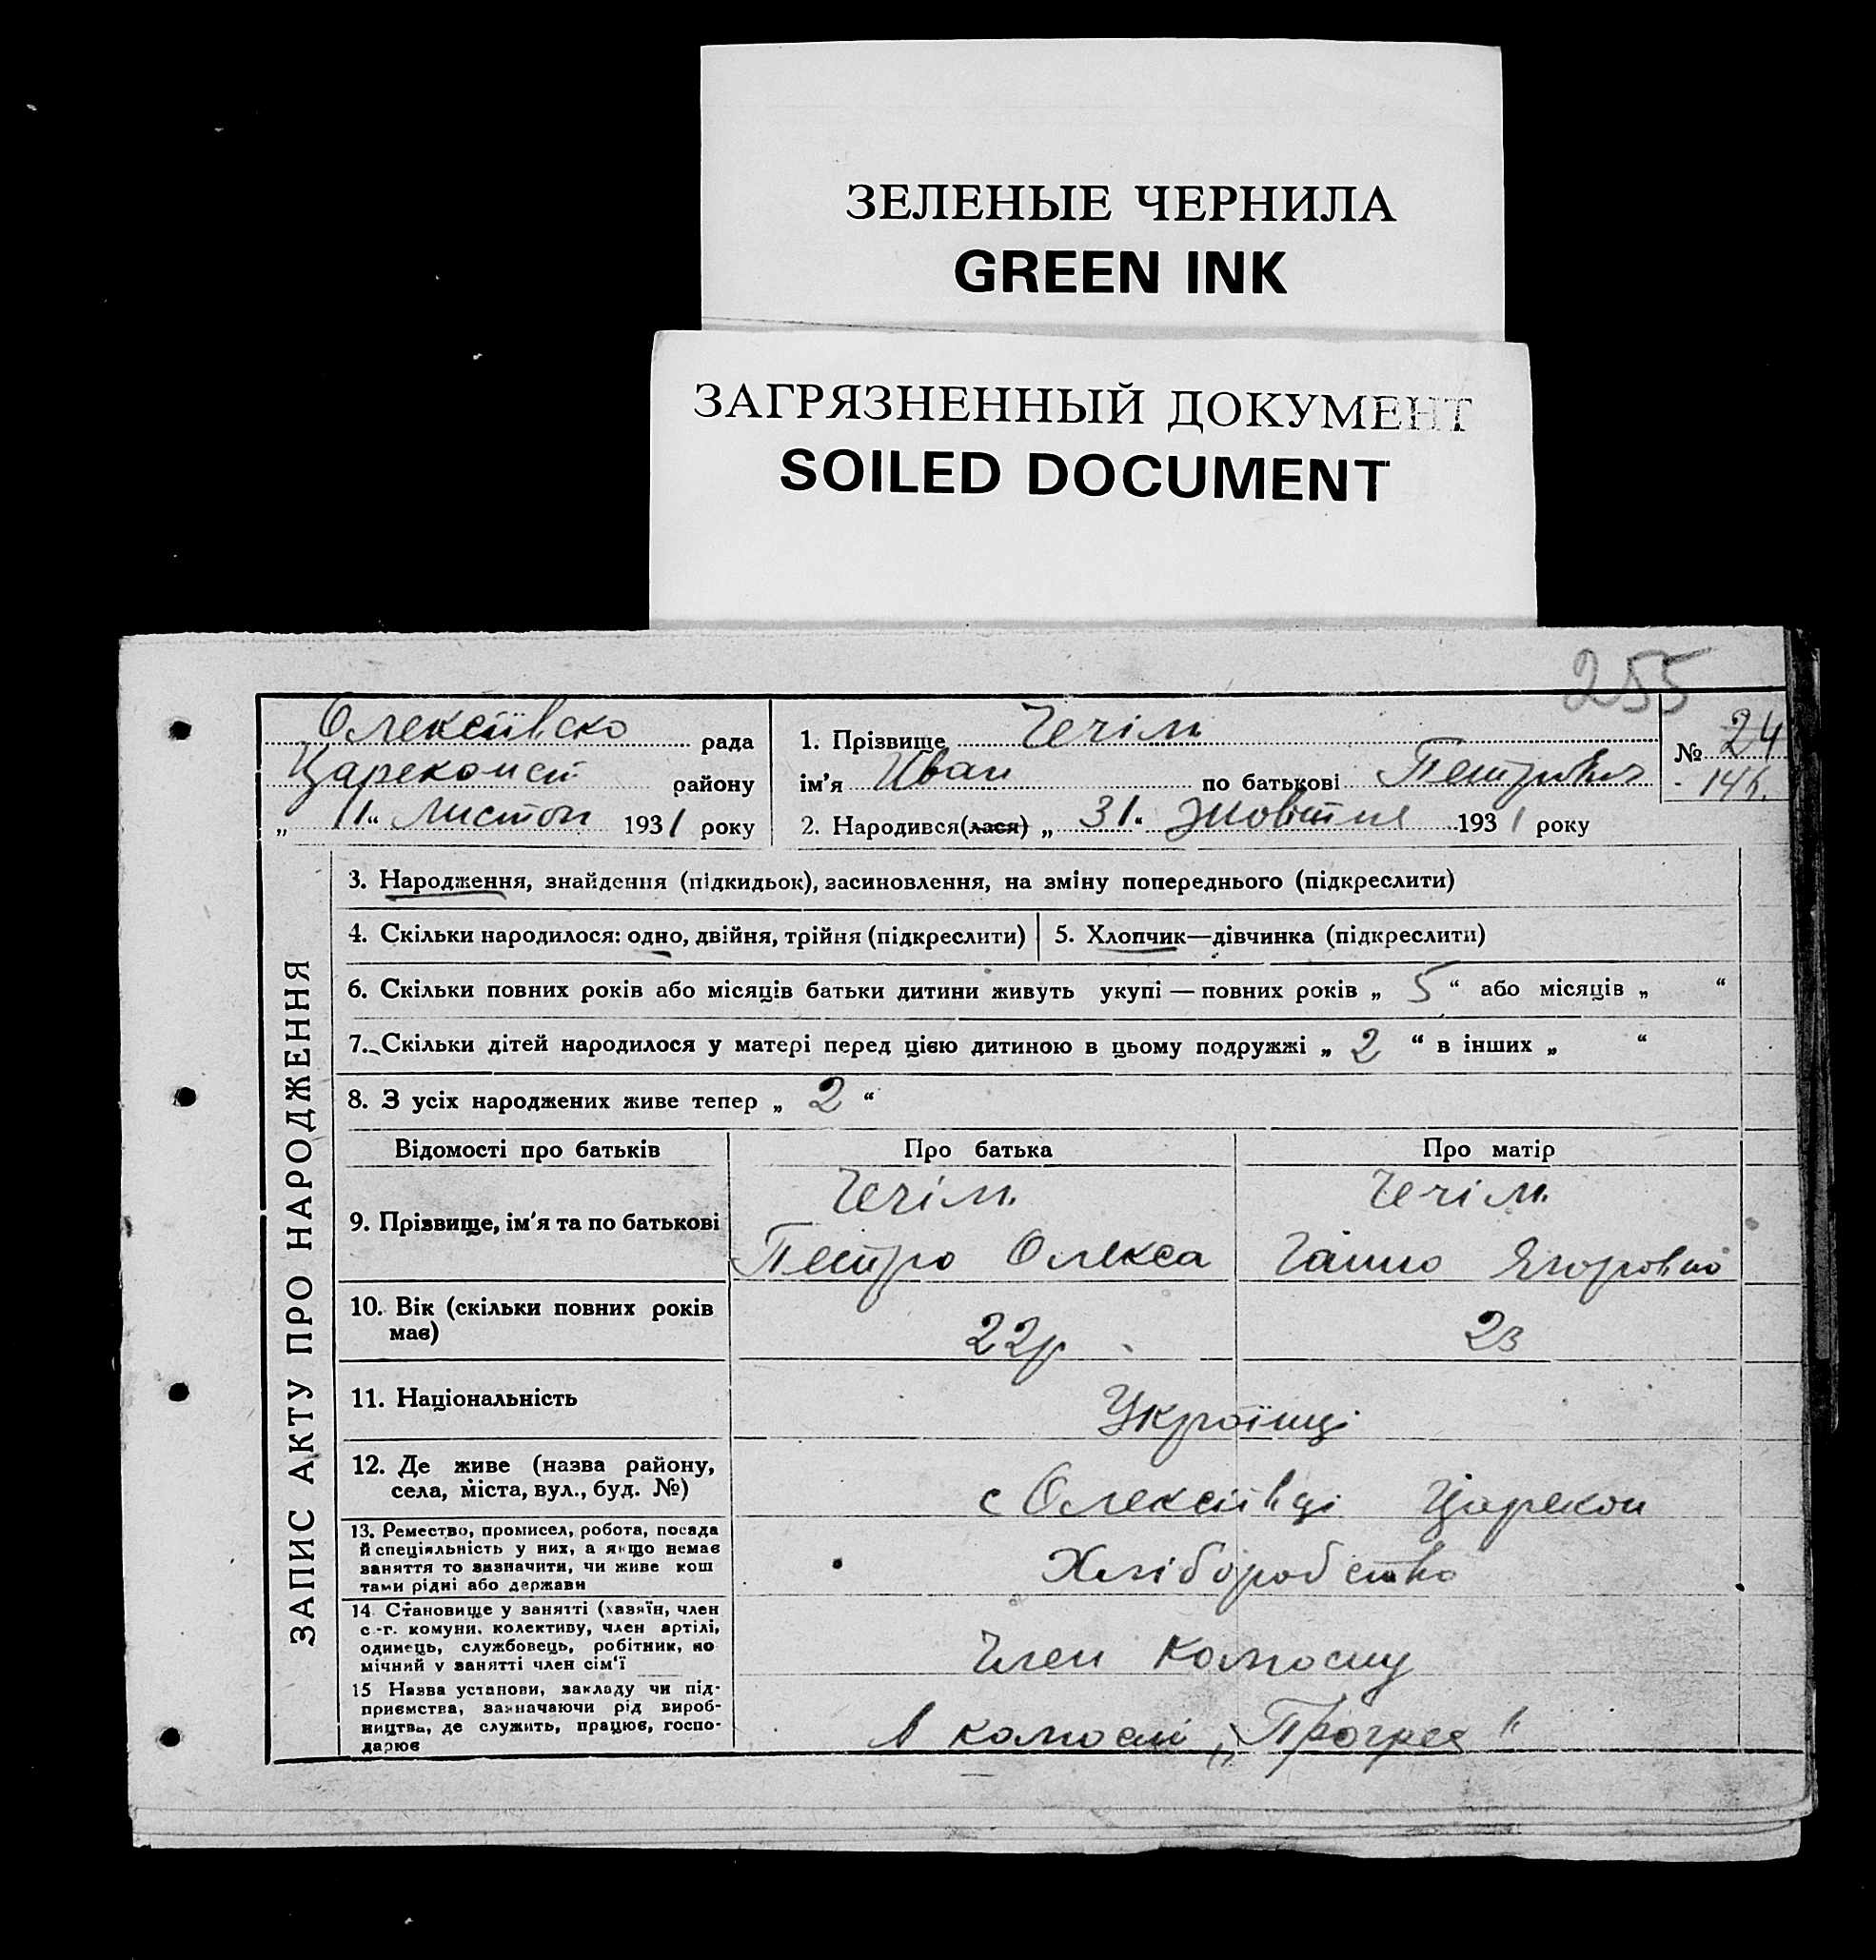 ЗЕЛЕНЫЕ ЧЕРНИЛА
GREEN INK
ЗАГРЯЗНЕННЫЙ ДОКУМЕНТ
SOILED DOCUMENT
255
Олексіївско рада
Царекомст району
„ 11 “ листоп 1931 року
1. Прізвище Чечіль
ім'я Иван по батькові Петрович
2. Народився(лася) „ 31 “ Жовтня 1931 року
№ 24
146.
ЗАПИС АКТУ ПРО НАРОДЖЕННЯ
3. Народження, знайдення (підкидьок), засиновлення, на зміну попереднього (підкреслити)
4. Скільки народилося: одно, двійня, трійня (підкреслити)
5. Хлопчик—дівчинка (підкреслити)
6. Скільки повних років або місяців батьки дитини живуть укупі — повних років „ 5 “ або місяців „ “
7. Скільки дітей народилося у матері перед цією дитиною в цьому подружжі „ 2 “ в інших „ “
8. З усіх народжених живе тепер „ 2 “
Відомості про батьків Про батька Про матір
9. Прізвище, ім'я та по батькові
Чечіль Чечіль
Петро Олекса Ганно Ягоровно
10. Вік (скільки повних років
має)
22р 23
11. Національність
Українці
12. Де живе (назва району,
села, міста, вул., буд. №)
с Олексіївці Царекон
13. Ремество, промисел, робота, посада
й спеціяльність у них, а якщо немає
заняття то зазначити, чи живе кош
тами рідні або держави
Хліборобство
14. Становище у занятті (хазяїн, член
с.-г. комуни, колективу, член артілі,
одинець, службовець, робітник, по
мічний у занятті член сім'ї
Член колгоспу
15 Назва установи, закладу чи під-
приємства, зазначаючи рід вироб-
ництва, де служить, працює, госпо-
дарює
в колгоспі „Прогрес“